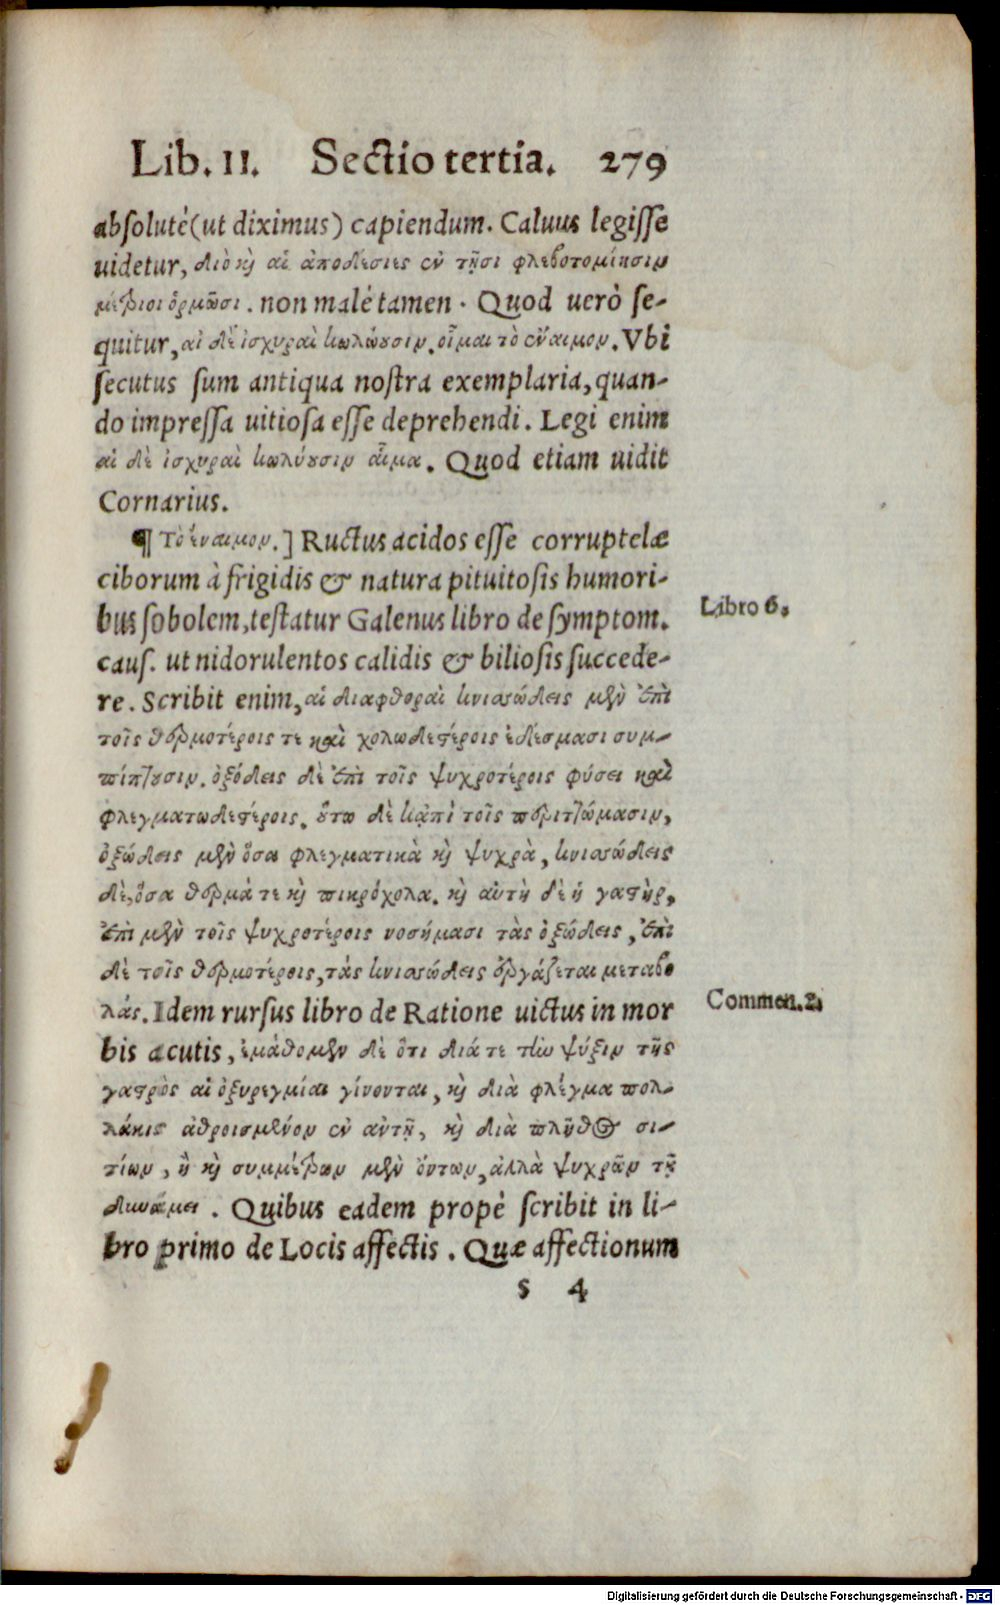 Lib. II. Sectio tertia. 279
absolutè (ut diximus) capiendum. Caluus legisse
uidetur, διὸ κὴ αἱ ἀποδέσιες ἐν τῇσι φλεβοτομίησιν
μέτριοι ὁρμῶσι. non malè tamen. Quod uerò se-
quitur, αἱ δὲ ἰσχυραὶ κωλύουσιν. οἶμαι τὸ ἔναιμον. Vbi
secutus sum antiqua nostra exemplaria, quan-
do impressa uitiosa esse deprehendi. Legi enim
αἱ δὲ ἰσχυραὶ κωλύουσιν αἷμα. Quod etiam uidit
Cornarius.
¶ Τὸ ἔναιμον.] Ructus acidos esse corruptelæ
ciborum à frigidis & natura pituitosis humori-
bus sobolem, testatur Galenus libro de symptom.
Libro 6.
caus. ut nidorulentos calidis & biliosis succede-
re. Scribit enim, αἱ διαφθοραὶ κνισώδεις μὲν ἐπὶ
τοῖς θερμοτέροις τε καὶ χολωδεστέροις ἐδέσμασι συμ-
πίπτουσιν. ὀξώδεις δὲ ἐπὶ τοῖς ψυχροτέροις φύσει καὶ
φλεγματωδεστέροις. οὕτω δὲ κἀπὶ τοῖς περιττώμασιν,
ὀξώδεις μὲν ὅσα φλεγματικὰ καὶ ψυχρὰ, κνισώδεις
δὲ, ὅσα θερμά τε καὶ πικρόχολα. καὶ αὐτὴ δὲ ἡ γαστὴρ,
ἐπὶ μὲν τοῖς ψυχροτέροις νοσήμασι τὰς ὀξώδεις, ἐπὶ
δὲ τοῖς θερμοτέροις, τὰς κνισώδεις ἐργάζεται μεταβο
λάς. Idem rursus libro de Ratione uictus in mor
Commen. 2.
bis acutis, ἐμάθομεν δὲ ὅτι διά τε τὴν ψύξιν τῆς
γαστρὸς αἱ ὀξυρεγμίαι γίνονται, καὶ διὰ φλέγμα πολ-
λάκις ἀθροισμένον ἐν αὐτῇ, καὶ διὰ πλῆθος σι-
τίων, ἢ καὶ συμμέτρων μὲν ὄντων, ἀλλὰ ψυχρῶν τῇ
δυνάμει. Quibus eadem propè scribit in li-
bro primo de Locis affectis. Quæ affectionum
s 4
Digitalisierung gefördert durch die Deutsche Forschungsgemeinschaft - DFG